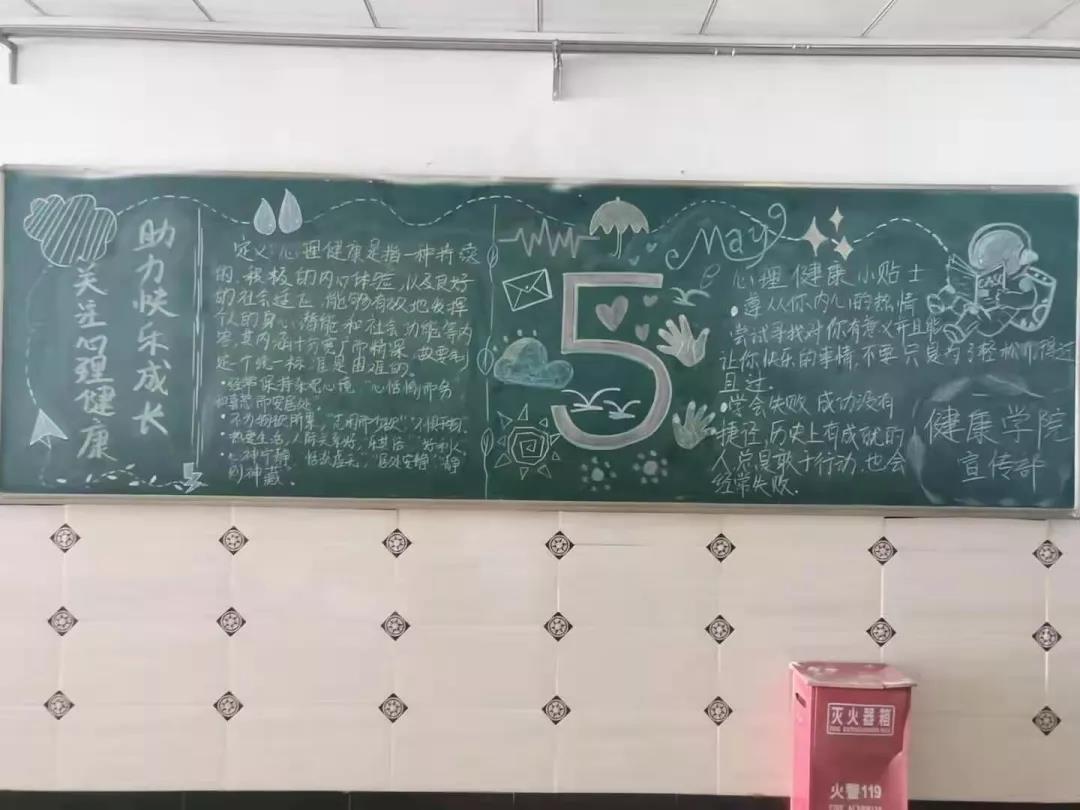 助力快乐成长
关注心理健康
定义:心理健康是指一种持续
的、积极的内心体验,以及良好
的社会适应,能够有效地发挥
个人的身心潜能和社会功能等内
容,其内涵十分宽广而精果,要
这个统一标准是困难的。
·经常保持乐观心境,
·热爱生活,
·心神宁静,
则神藏。
5
May
心理健康小贴士
·尊从你内心的热情
·尝试寻找对你有意义并且能
让你快乐的事情,不要只是为了轻松而得过
且过.
·学会失败,成功没有
捷径,历史上有成就的
人总是敢于行动,也会
经常失败.
健康学院
宣传部
灭火器箱
FIRE EXTINGUISHER BOX
火警119